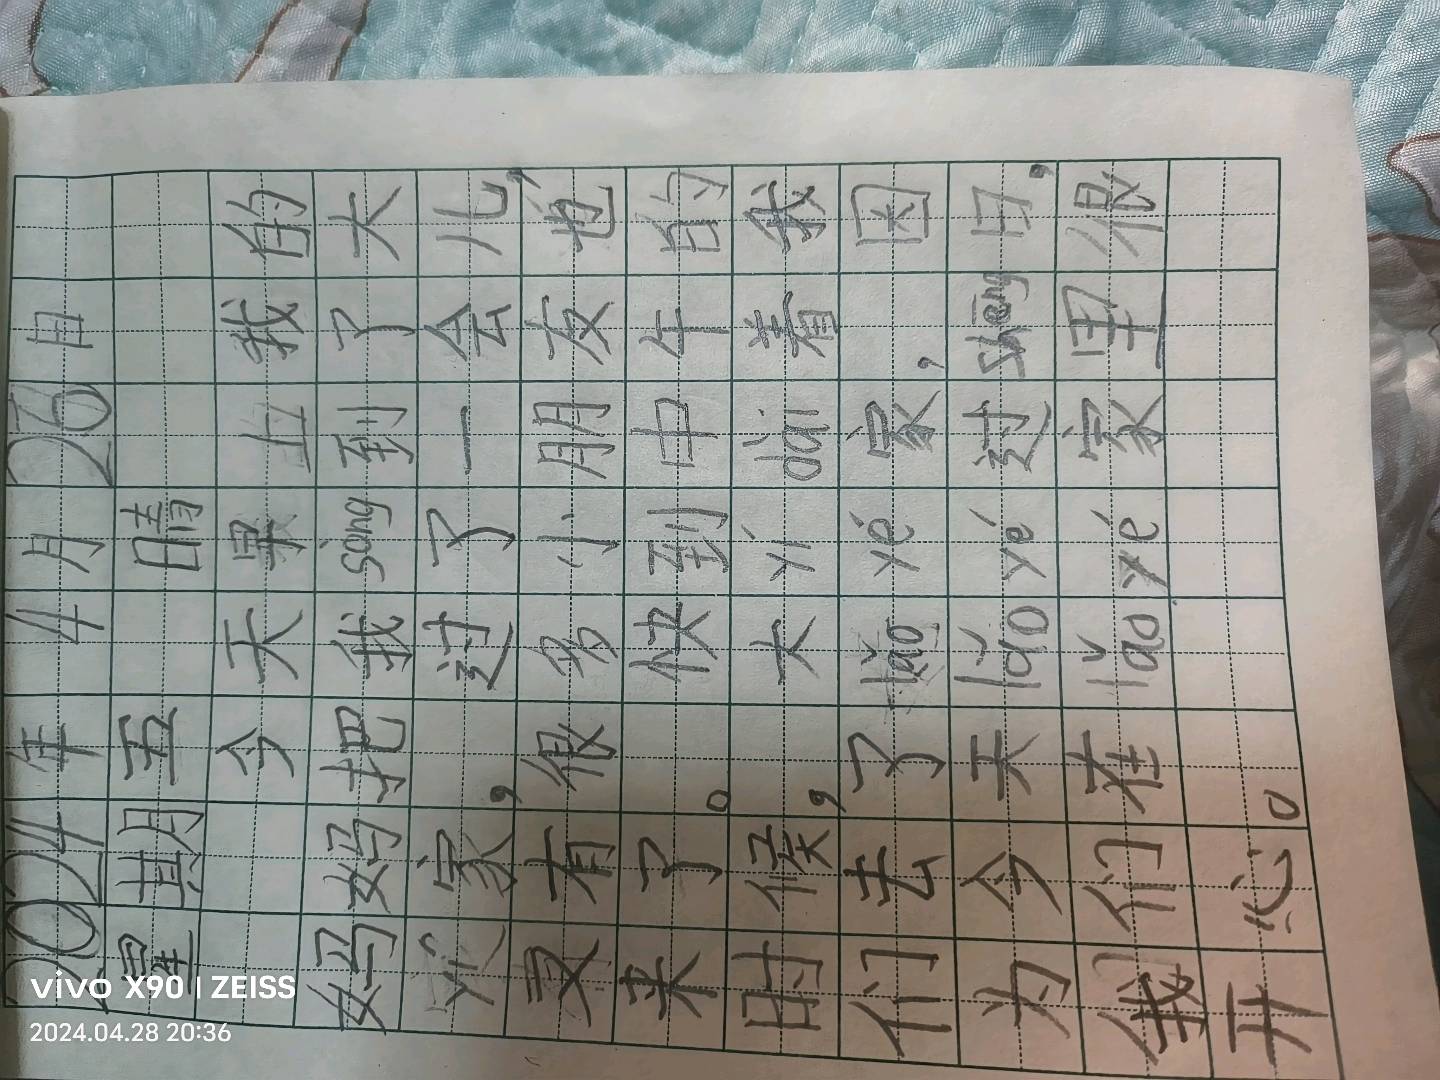 2024年4月26日
星期五 晴
今天早上我的
妈妈把我sòng到了大
yí家,过了一会儿,
又有很多小朋友也
来了。快到中午的
时候,大yí dài着我
们去了lǎo yé家,因
为今天lǎo yé过shēng日,
我们在lǎo yé家里很
开心。
vivo X90 | ZEISS
2024.04.28 20:36